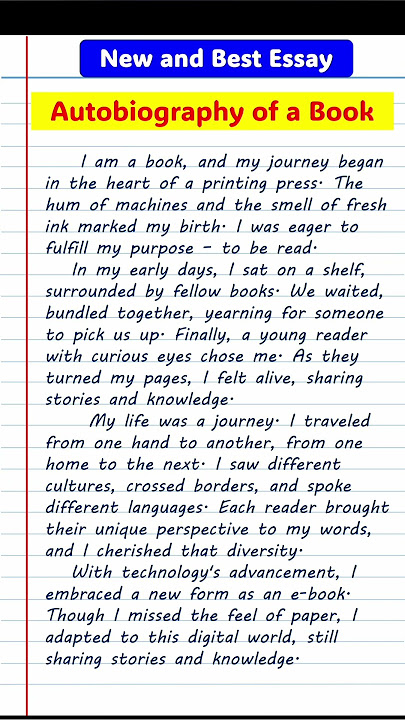 New and Best Essay
Autobiography of a Book
I am a book, and my journey began
in the heart of a printing press. The
hum of machines and the smell of fresh
ink marked my birth. I was eager to
fulfill my purpose - to be read.
In my early days, I sat on a shelf,
surrounded by fellow books. We waited,
bundled together, yearning for someone
to pick us up. Finally, a young reader
with curious eyes chose me. As they
turned my pages, I felt alive, sharing
stories and knowledge.
My life was a journey. I traveled
from one hand to another, from one
home to the next. I saw different
cultures, crossed borders, and spoke
different languages. Each reader brought
their unique perspective to my words,
and I cherished that diversity.
With technology's advancement, I
embraced a new form as an e-book.
Though I missed the feel of paper, I
adapted to this digital world, still
sharing stories and knowledge.